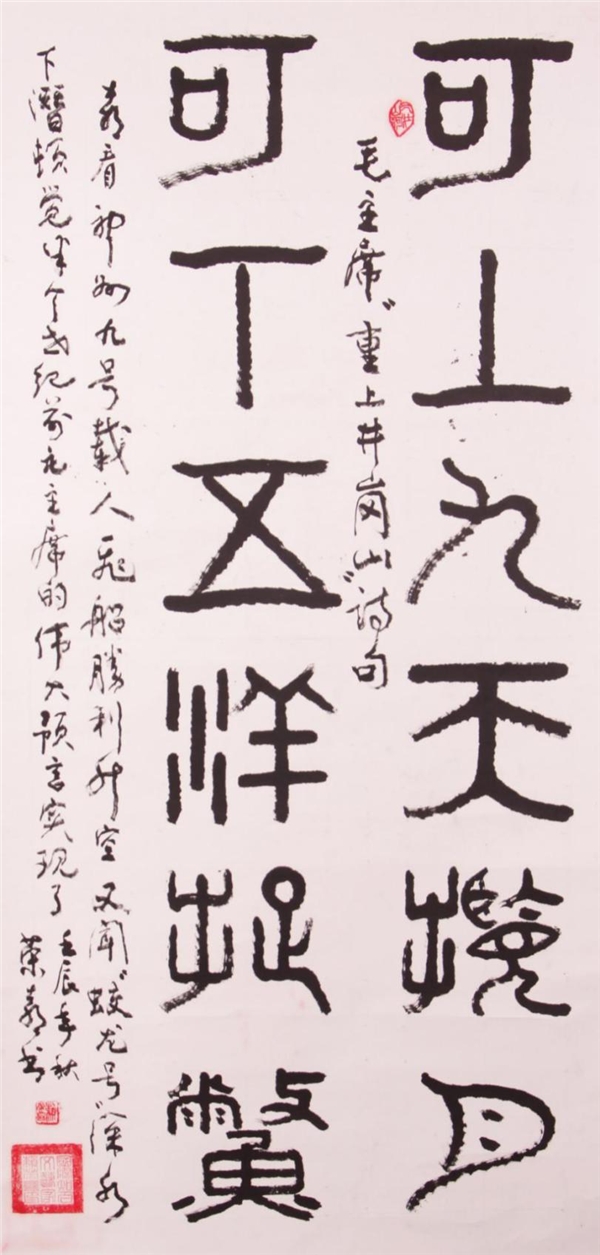 可上九天攬月
毛主席"重上井岗山"詩句
可下五洋捉鱉
喜看神州九号載人飛船勝利升空又聞"蛟龙号"深水
下潛頓觉半个世纪前毛主席的伟大预言实现了
壬辰年秋
荣喜书